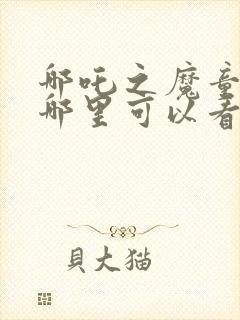 哪吒之魔童
哪里可以看
貝大猫